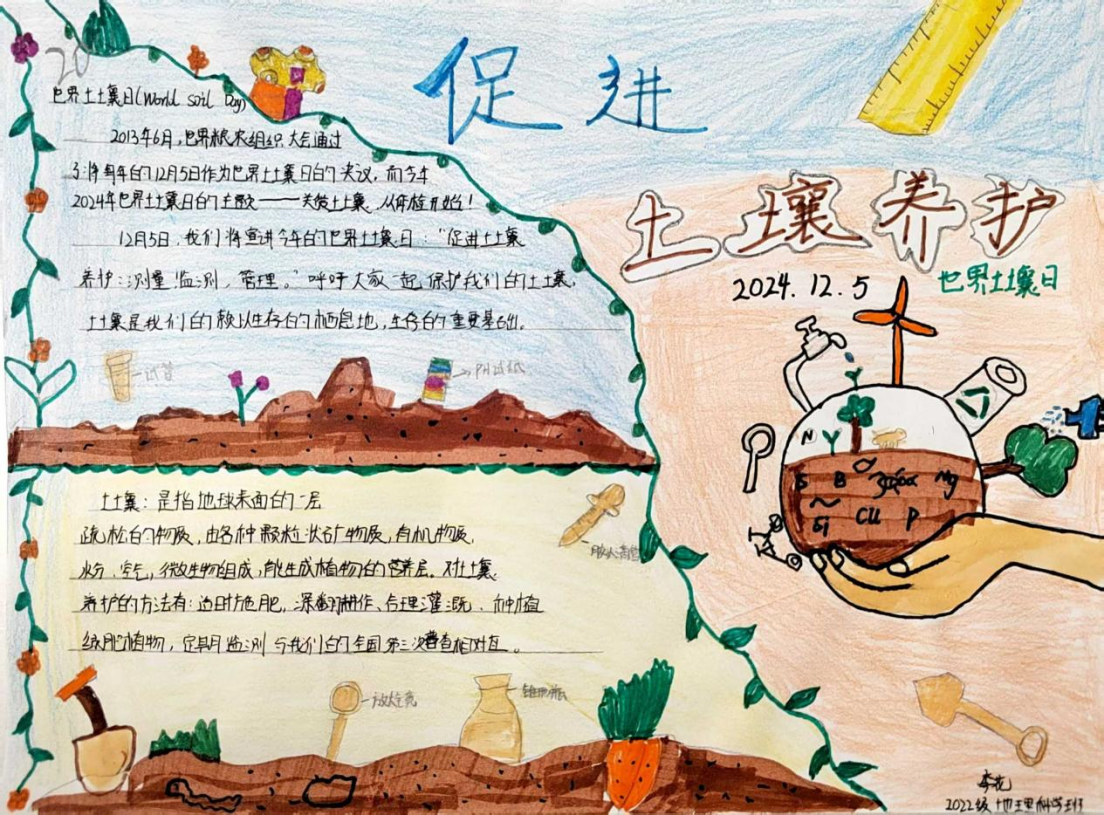 促进
土壤养护
2024.12.5
世界土壤日
20
世界土壤日(World soil Day)
2013年6月,世界粮农组织大会通过
了将每年的12月5日作为世界土壤日的决议,而今年
2024年世界土壤日的主题——关爱土壤 从体检开始!
12月5日,我们将宣讲今年的世界土壤日:“促进土壤
养护:测量 监测、管理。”呼吁大家一起保护我们的土壤,
土壤是我们的赖以生存的栖息地,生存的重要基础。
试管
PH试纸
土壤:是指地球表面的一层
疏松的物质,由各种颗粒状矿物质,有机物质,
水分、空气,微生物组成,能生成植物的营养层。对土壤
养护的方法有:适时施肥,深翻耕作、合理灌溉、种植
绿肥植物,定期监测与我们的全国第三次普查相对应。
胶头滴管
放大镜
锥形瓶
N
S B Mg
Si Cu P
李花
2022级 地理科学班